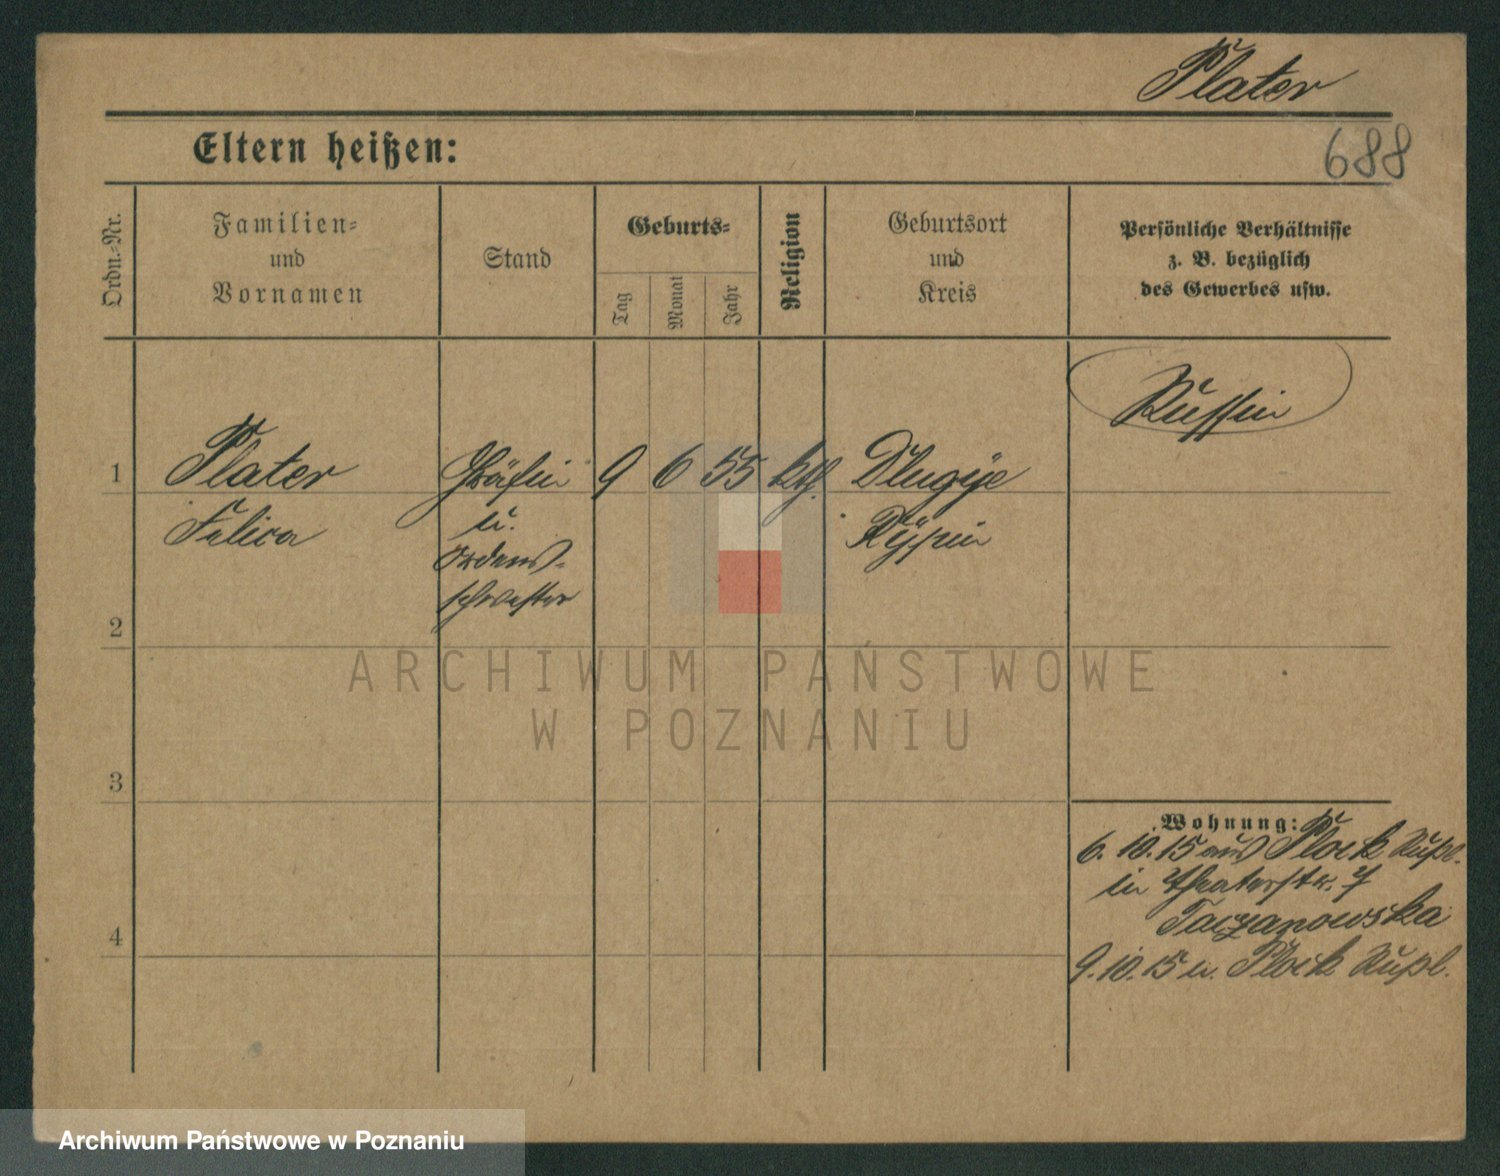 Plater
688
Eltern heißen:
Ordn.-Nr.
Familien-
und
Vornamen
Stand
Geburts-
Tag
Monat
Jahr
Religion
Geburtsort
und
Kreis
Persönliche Verhältnisse
z. B. bezüglich
des Gewerbes usw.
Russin
1
Plater
Gräfin
9
6
55
kth.
Dlugije
Felica
u.
Ordens-
schwester
Rypin
2
3
4
Wohnung:
6. 10. 15 aus Plock Rußl.
in Theaterstr. 7
Taczanowska
9. 10. 15 n. Plock Rußl.
ARCHIWUM PAŃSTWOWE
W POZNANIU
Archiwum Państwowe w Poznaniu